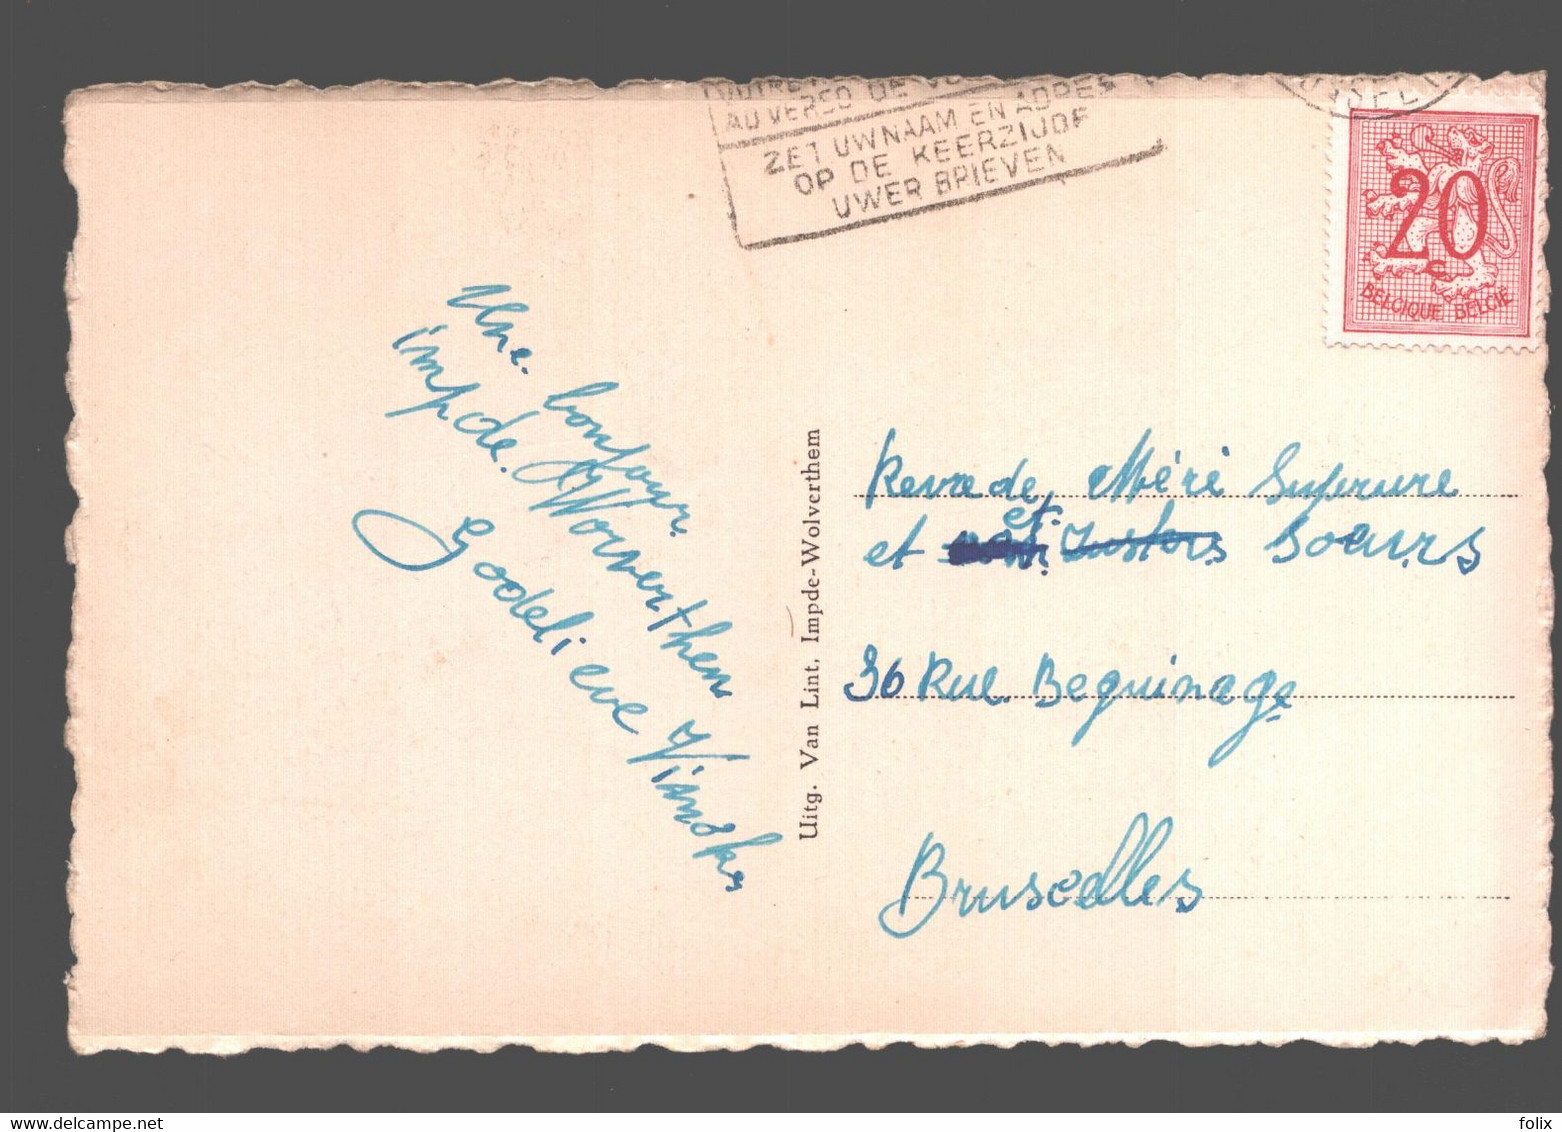 AU VERSO DE
ZET UW NAAM EN ADRES
OP DE KEERZIJDE
UWER BRIEVEN
20
c
BELGIQUE BELGIË
Une. bonjour.
impde. Worverthem
Godelieve
Uitg. Van Lint, Impde-Wolverthem
Revrede, Méré Suprure
et.
et Zusters soeurs
36 Rue. Beguinage
Bruselles
folix